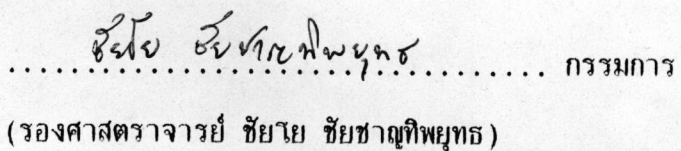 ชัยโย ชัยชาญทิพยุทธ
.................................... กรรมการ
(รองศาสตราจารย์ ชัยโย ชัยชาญทิพยุทธ)